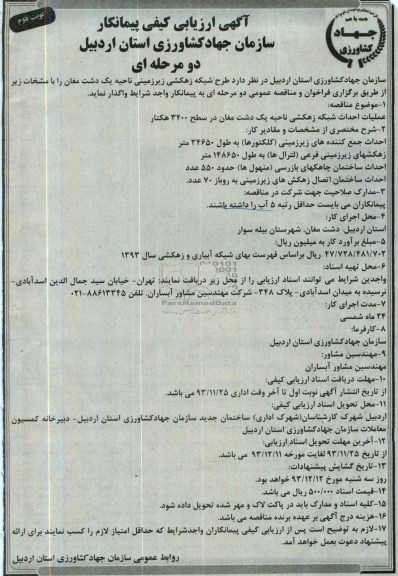 نوبت دوم
همه با هم
جهاد
کشاورزی
آگهی ارزیابی کیفی پیمانکار
سازمان جهادکشاورزی استان اردبیل
دو مرحله ای
سازمان جهادکشاورزی استان اردبیل در نظر دارد طرح شبکه زهکشی زیرزمینی ناحیه یک دشت مغان را با مشخات زیر
از طریق برگزاری فراخوان و مناقصه عمومی دو مرحله ای به پیمانکار واجد شرایط واگذار نماید.
۱-موضوع مناقصه:
عملیات احداث شبکه زهکشی ناحیه یک دشت مغان در سطح ۳۴۰۰ هکتار
۲-شرح مختصری از مشخصات و مقادیر کار:
احداث جمع کننده های زیرزمینی (کلکتورها) به طول ۳۴۶۵۰ متر
زهکشهای زیرزمینی فرعی (لترال ها) به طول ۱۴۸۶۵۰ متر
احداث ساختمان چاهکهای بازرسی (منهول ها) حدود ۵۵۰ عدد
احداث ساختمان اتصال زهکش های زیرزمینی به روباز ۷۰ عدد.
۳-مدارک صلاحیت جهت شرکت در مناقصه:
پیمانکاران می بایست حداقل رتبه ۵ آب را داشته باشند.
۴-محل اجرای کار:
استان اردبیل. دشت مغان، شهرستان بیله سوار
۵-مبلغ برآورد کار به میلیون ریال:
۴۷/۷۲۸/۴۸۱/۷۰۲ ریال براساس فهرست بهای شبکه آبیاری و زهکشی سال ۱۳۹۳
۶-محل تهیه اسناد:
واجدین شرایط می توانند اسناد ارزیابی را از محل زیر دریافت نمایند: تهران- خیابان سید جمال الدین اسدآبادی-
نرسیده به میدان اسدآبادی- پلاک ۳۴۸- شرکت مهندسین مشاور آبساران. تلفن ۸۸۶۱۳۳۴۵-۰۲۱
۷-مدت اجرای کار:
۲۴ ماه شمسی
۸-کارفرما:
سازمان جهادکشاورزی استان اردبیل
۹-مهندسین مشاور:
مهندسین مشاور آبساران
۱۰-مهلت دریافت اسناد ارزیابی کیفی:
از تاریخ انتشار آگهی نوبت اول تا آخر وقت اداری ۹۳/۱۱/۲۵ می باشد.
۱۱-محل تحویل اسناد ارزیابی کیفی:
اردبیل شهرک کارشناسان(شهرک اداری) ساختمان جدید سازمان جهادکشاورزی استان اردبیل- دبیرخانه کمسیون
معاملات سازمان جهادکشاورزی استان اردبیل
۱۲-آخرین مهلت تحویل اسناد ارزیابی:
از تاریخ ۹۳/۱۱/۲۵ لغایت مورخه ۹۳/۱۲/۱۱ می باشد.
۱۳-تاریخ گشایش پیشنهادات:
روز سه شنبه مورخ ۹۳/۱۲/۱۲ خواهد بود.
۱۴-قیمت اسناد ۵۰۰/۰۰۰ ریال می باشد.
۱۵-کلیه اسناد و مدارک باید در پاکت لاک و مهر شده تحویل داده شود.
۱۶-هزینه درج آگهی بر عهده برنده مناقصه می باشد.
۱۷-لازم به توضیح است پس از ارزیابی کیفی پیمانکاران واجدشرایط که حداقل امتیاز لازم را کسب نمایند برای ارائه
پیشنهاد دعوت بعمل خواهد آمد.
روابط عمومی سازمان جهادکشاورزی استان اردبیل